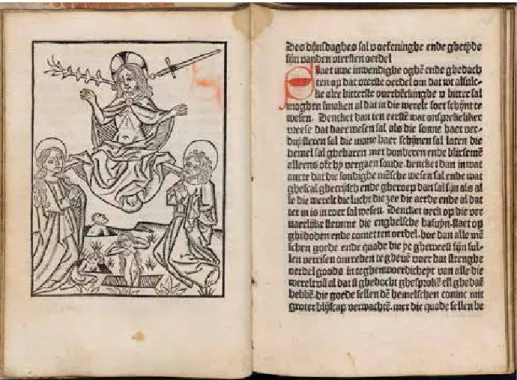 Des dijnsdaghes sal v oefeninghe ende
sijn vanden vtersten oerdel
Slaet uwe inwendighe oghē ende ghedach
ten op dat vterste oerdel om dat
ke alre bitterste ouerdēckinghe v bitter sal
moghen smaken al dat in die werelt soet schijnt te
wesen. Dencket dan ten eerstē wat onsprekeliker
vreese dat daer wesen sal als die sonne haer ver-
duysteren sal die mane haer schijnen sal laten die
hemel sal ghebaren met donderen ende blixsemē
alleens oft hy vergaen soude. dencket dan in wat
anxte dat die sondighe mēsche wesen sal ende wat
ghescal ende gheroep dan sal sijn als al
se die werelt die lucht die zee die aerde ende al dat
ter in is in roer sal wesen. Dencket oeck op die ver
uaerlijke stemme die enghelsche basuyn. staet op
ghi doden ende comet ten oerdel. hoe dan alle mē
schen goede ende quade die ye gheweest sijn sul
len verrisen om reden te gheuē voer dat strenghe
oerdel goods in teghenwoerdicheyt van alle die
werelt vā al dat si ghedocht ghesprokē eñ ghedaē
hebbē. die goede sellen dē hemelschen coninc mit
groter blijscap verwachtē. mer die quade sellen be